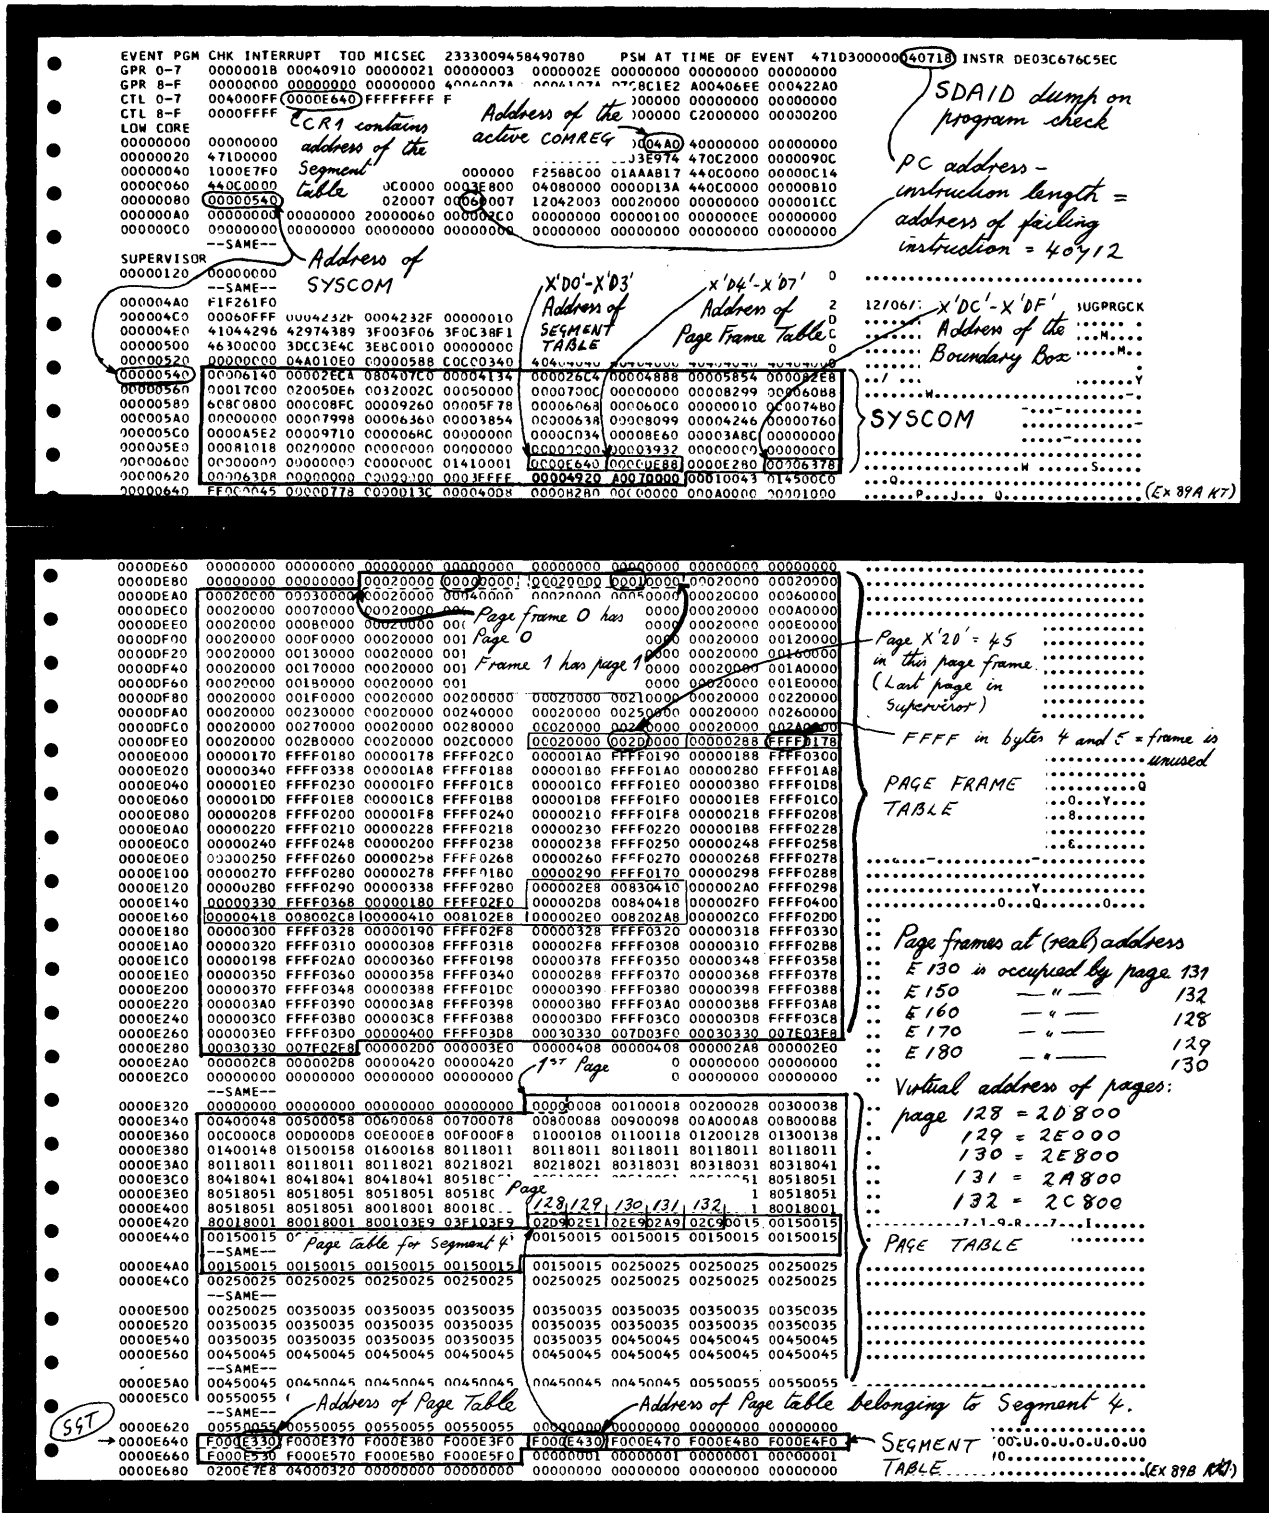 EVENT PGM CHK INTERRUPT TOD MICSEC 2333009458490780 PSW AT TIME OF EVENT 471D300000040718 INSTR DE03C676C5EC
GPR 0-7 0000001B 00040910 00000021 00000003 0000002E 00000000 00000000 00000000
GPR 8-F 00000000 00000000 00000000
CTL 0-7 004000FF 0000E640 FFFFFFFF F
CTL 8-F 0000FFFF
LOW CORE
SDAID dump on program check
CR1 contains address of the Segment table
Address of the active COMREG
PC address - instruction length = address of failing instruction = 40712
00000000 00000000 0004A0 40000000 00000000
00000020 47100000 470C2000 0000090C
00000040 1000E7F0 000000 F258BC00 01AAAB17 440C0000 00000C14
00000060 440C0000 0C0000 0003E800 04080000 0000D13A 440C0000 00000B10
00000080 00000540 020007 00060007 12042003 00020000 00000000 000001CC
000000A0 00000000 00000000 20000060 000002C0 00000000 00000100 0000000E 00000000
000000C0 00000000 00000000 00000000 00000000 00000000 00000000 00000000 00000000
--SAME--
SUPERVISOR
00000120 00000000
--SAME--
Address of SYSCOM
X'D0'-X'D3' Address of SEGMENT TABLE
X'D4'-X'D7' Address of Page Frame Table
X'DC'-X'DF' Address of the Boundary Box
000004A0 F1F261F0 12/06/ UGPRGCK
000004C0 00060FFF 0004232F 0004232F 00000010
000004E0 41044296 42974389 3F003F06 3F0C38F1
00000500 46300000 3DCC3E4C 3E8C0010 00000000
00000520 00000000 04A010E0 00000588 C0C00340
00000540 00006140 00002ECA 080407C0 00004134 000026C4 00004888 00005854 000082E8
00000560 00017C00 020050E6 0032002C 00050000 0000700C 00000000 00008299 00006088
00000580 608C0800 000008FC 00009260 00005F78 00006068 000060C0 00000010 0C007480
000005A0 00000000 00007998 00006360 00003854 00000638 00008099 00004246 00000760
000005C0 0000A5E2 00009710 0000068C 00000000 0000C034 00008E60 00003A8C 00000000
000005E0 00081018 00200000 00000000 00000000 00000000 00003932 00000000 00000000
00000600 00000000 00000000 0000000C 01410001 0000E640 0000DE88 0000E280 00006378
00000620 00006308 00000000 00000000 0003FFFF 00004920 A0070000 00010043 014500C0
00000640 FF000045 00000778 0000013C 000040D8 00008280 00000000 000A0000 00001000
SYSCOM
(Ex 89A KT)
0000DE60 00000000 00000000 00000000 00000000 00000000 00000000 00000000 00000000
0000DE80 00000000 00000000 00020000 00000000 00020000 00010000 00020000 00020000
0000DEA0 00020000 00030000 00020000 00040000 00020000 00050000 00020000 00060000
0000DEC0 00020000 00070000 00020000 0000 00020000 000A0000
0000DEE0 00020000 000B0000 00020000 0000 00020000 000E0000
0000DF00 00020000 000F0000 00020000 001 0000 00020000 00120000
0000DF20 00020000 00130000 00020000 001 0000 00020000 00160000
0000DF40 00020000 00170000 00020000 001 0000 00020000 001A0000
0000DF60 00020000 001B0000 00020000 001 0000 00020000 001E0000
0000DF80 00020000 001F0000 00020000 00200000 00020000 00210000 00020000 00220000
0000DFA0 00020000 00230000 00020000 00240000 00020000 00250000 00020000 00260000
0000DFC0 00020000 00270000 00020000 00280000 00020000 00020000 002A0000
0000DFE0 00020000 002B0000 00020000 002C0000 00020000 002D0000 00000288 FFFF0178
0000E000 00000170 FFFF0180 00000178 FFFF02C0 000001A0 FFFF0190 00000188 FFFF0300
0000E020 00000340 FFFF0338 000001A8 FFFF0188 000001B0 FFFF01A0 00000280 FFFF01A8
0000E040 000001E0 FFFF0230 000001F0 FFFF01C8 000001C0 FFFF01E0 00000380 FFFF01D8
0000E060 000001D0 FFFF01E8 000001C8 FFFF01B8 000001D8 FFFF01F0 000001E8 FFFF01C0
0000E080 00000208 FFFF0200 000001F8 FFFF0240 00000210 FFFF01F8 00000218 FFFF0208
0000E0A0 00000220 FFFF0210 00000228 FFFF0218 00000230 FFFF0220 000001B8 FFFF0228
0000E0C0 00000240 FFFF0248 00000200 FFFF0238 00000238 FFFF0250 00000248 FFFF0258
0000E0E0 00000250 FFFF0260 00000258 FFFF0268 00000260 FFFF0270 00000268 FFFF0278
0000E100 00000270 FFFF0280 00000278 FFFF01B0 00000290 FFFF0170 00000298 FFFF0288
0000E120 000002B0 FFFF0290 00000338 FFFF0280 000002E8 00830410 000002A0 FFFF0298
0000E140 00000330 FFFF0368 00000180 FFFF02F0 000002D8 00840418 000002F0 FFFF0400
0000E160 00000418 008002C8 00000410 008102E8 000002E0 008202A8 000002C0 FFFF02D0
0000E180 00000300 FFFF0328 00000190 FFFF02F8 00000328 FFFF0320 00000318 FFFF0330
0000E1A0 00000320 FFFF0310 00000308 FFFF0318 000002F8 FFFF0308 00000310 FFFF02B8
0000E1C0 00000198 FFFF02A0 00000360 FFFF0198 00000378 FFFF0350 00000348 FFFF0358
0000E1E0 00000350 FFFF0360 00000358 FFFF0340 00000288 FFFF0370 00000368 FFFF0378
0000E200 00000370 FFFF0348 00000388 FFFF01D0 00000390 FFFF0380 00000398 FFFF0388
0000E220 000003A0 FFFF0390 000003A8 FFFF0398 000003B0 FFFF03A0 000003B8 FFFF03A8
0000E240 000003C0 FFFF03B0 000003C8 FFFF03B8 000003D0 FFFF03C0 000003D8 FFFF03C8
0000E260 000003E0 FFFF03D0 00000400 FFFF03D8 00030330 007D03F0 00030330 007E03E8
0000E280 00030330 007F02F8 00000200 000003E0 00000408 00000408 000002A8 000002E0
0000E2A0 000002C8 000002D8 00000420 00000420 0 00000000 00000000
0000E2C0 00000000 00000000 00000000 00000000 0 00000000 00000000
--SAME--
Page frame 0 has Page 0
Frame 1 has page 1
Page X'2D' = 45 in this page frame. (Last page in Supervisor)
FFFF in bytes 4 and 5 = frame is unused
PAGE FRAME TABLE
Page frames at (real) address
E130 is occupied by page 131
E150 — " — 132
E160 — " — 128
E170 — " — 129
E180 — " — 130
Virtual address of pages:
page 128 = 2D800
129 = 2E000
130 = 2E800
131 = 2A800
132 = 2C800
1ST Page
0000E320 00000000 00000000 00000000 00000000 00000008 00100018 00200028 00300038
0000E340 00400048 00500058 00600068 00700078 00800088 00900098 00A000A8 00B000B8
0000E360 00C000C8 00D000D8 00E000E8 00F000F8 01000108 01100118 01200128 01300138
0000E380 01400148 01500158 01600168 80118011 80118011 80118011 80118011 80118011
0000E3A0 80118011 80118011 80118021 80218021 80218021 80318031 80318031 80318041
0000E3C0 80418041 80418041 80418041 80518 51 80518051
0000E3E0 80518051 80518051 80518051 80518 1 80518051
0000E400 80518051 80518051 80018001 80018 1 80018001
0000E420 80018001 80018001 800103E9 03F103F9 02D902E1 02E902A9 02C90015 00150015
0000E440 00150015 0 00150015 00150015 00150015 00150015
--SAME--
0000E4A0 00150015 00150015 00150015 00150015 00150015 00250025 00250025 00250025
0000E4C0 00250025 00250025 00250025 00250025 00250025 00250025 00250025 00250025
--SAME--
0000E500 00250025 00350035 00350035 00350035 00350035 00350035 00350035 00350035
0000E520 00350035 00350035 00350035 00350035 00350035 00350035 00350035 00350035
0000E540 00350035 00350035 00350035 00350035 00350035 00450045 00450045 00450045
0000E560 00450045 00450045 00450045 00450045 00450045 00450045 00450045 00450045
--SAME--
0000E5A0 00450045 00450045 00450045 00450045 00450045 00450045 00550055 00550055
0000E5C0 00550055
--SAME--
0000E620 00550055 00550055 00550055 00550055 00000000 00000000 00000000 00000000
0000E640 F000E330 F000E370 F000E3B0 F000E3F0 F000E430 F000E470 F000E4B0 F000E4F0
0000E660 F000E530 F000E570 F000E5B0 F000E5F0 00000001 00000001 00000001 00000001
0000E680 0200E7E8 04000320 00000000 00000000 00000000 00000000 00000000 00000000
Page 128 129 130 131 132
Page table for Segment 4
PAGE TABLE
Address of Page Table
Address of Page table belonging to Segment 4.
SGT
SEGMENT TABLE
(Ex 89B KT)